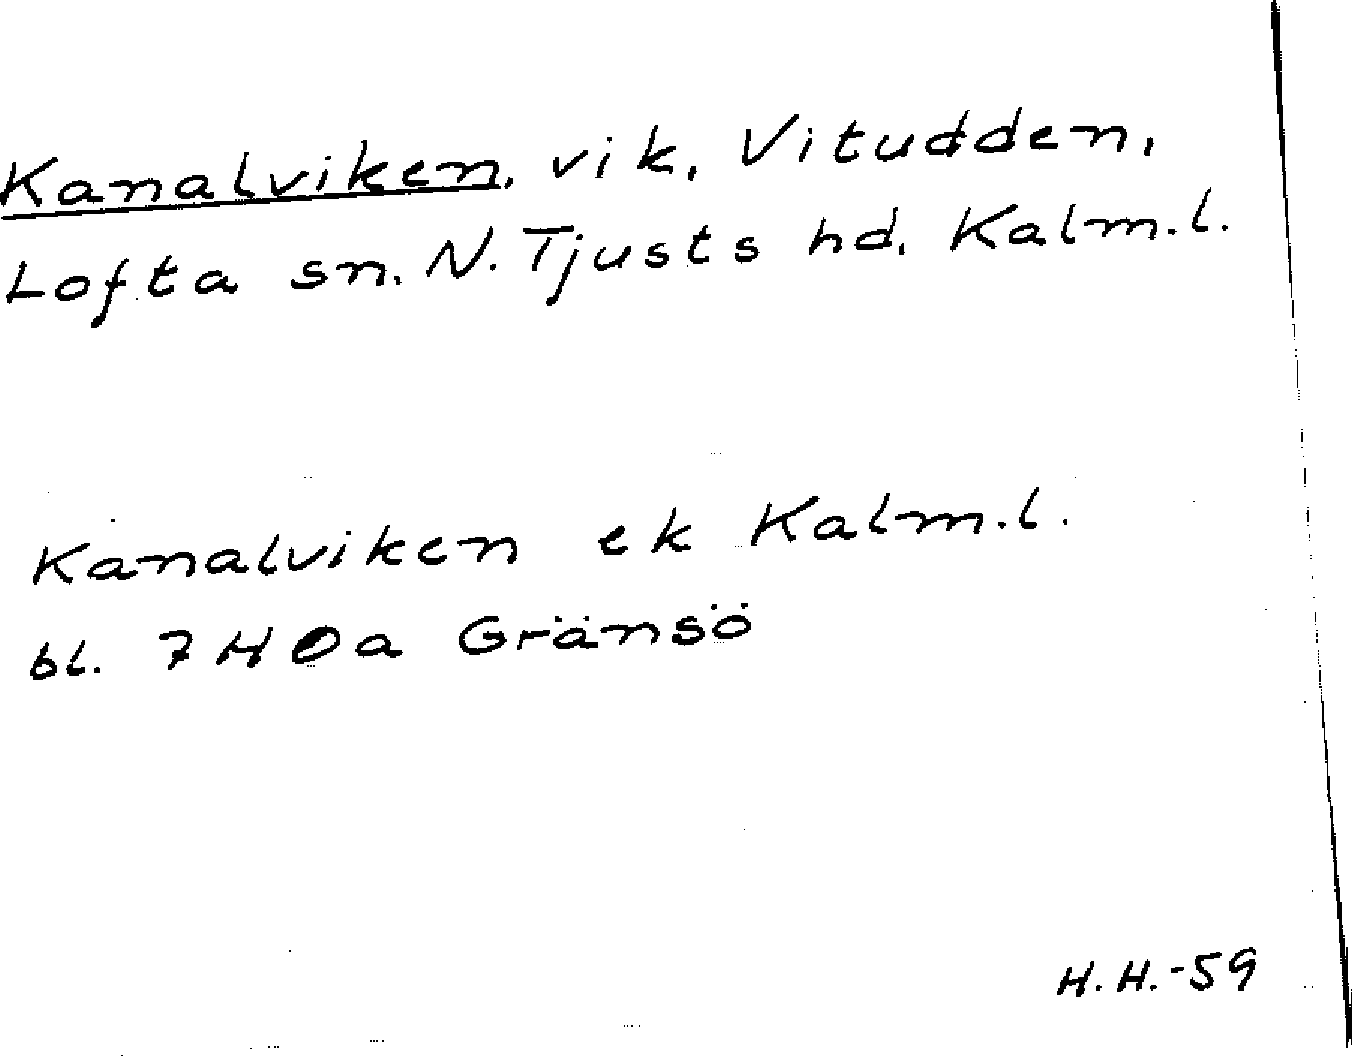 Kanalviken, vik, Vitudden,
Lofta sn. N. Tjusts hd. Kalm.l.
Kanalviken ek Kalm.l.
bl. 7H0a Gränsö
H.H.-59